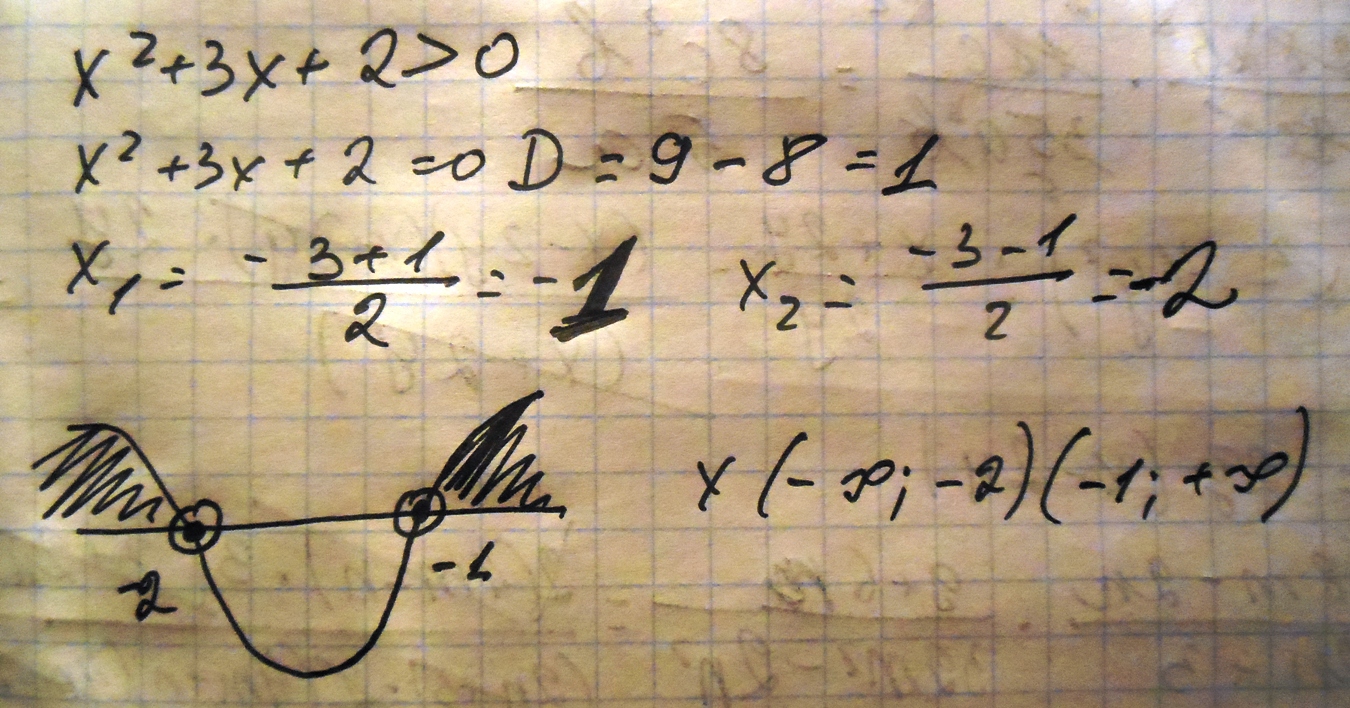 x² + 3x + 2 > 0
x² + 3x + 2 = 0 D = 9 - 8 = 1
x₁ = - 3+1/2 = -1 x₂ = -3-1/2 = -2
x (-∞; -2)(-1; +∞)
-2 -1